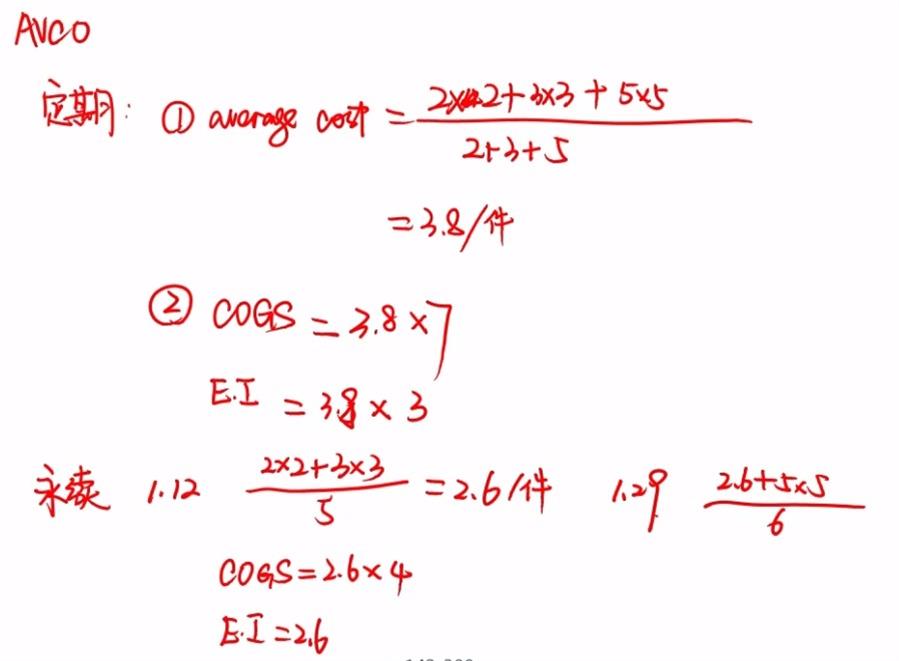 AVCO
定期: ① average cost = (2×2+3×3+5×5)/(2+3+5)
=3.8/件
② COGS = 3.8×7
E.I = 3.8×3
永续 1.12 (2×2+3×3)/5 =2.6/件 1.29 (2.6+5×5)/6
COGS=2.6×4
E.I=2.6